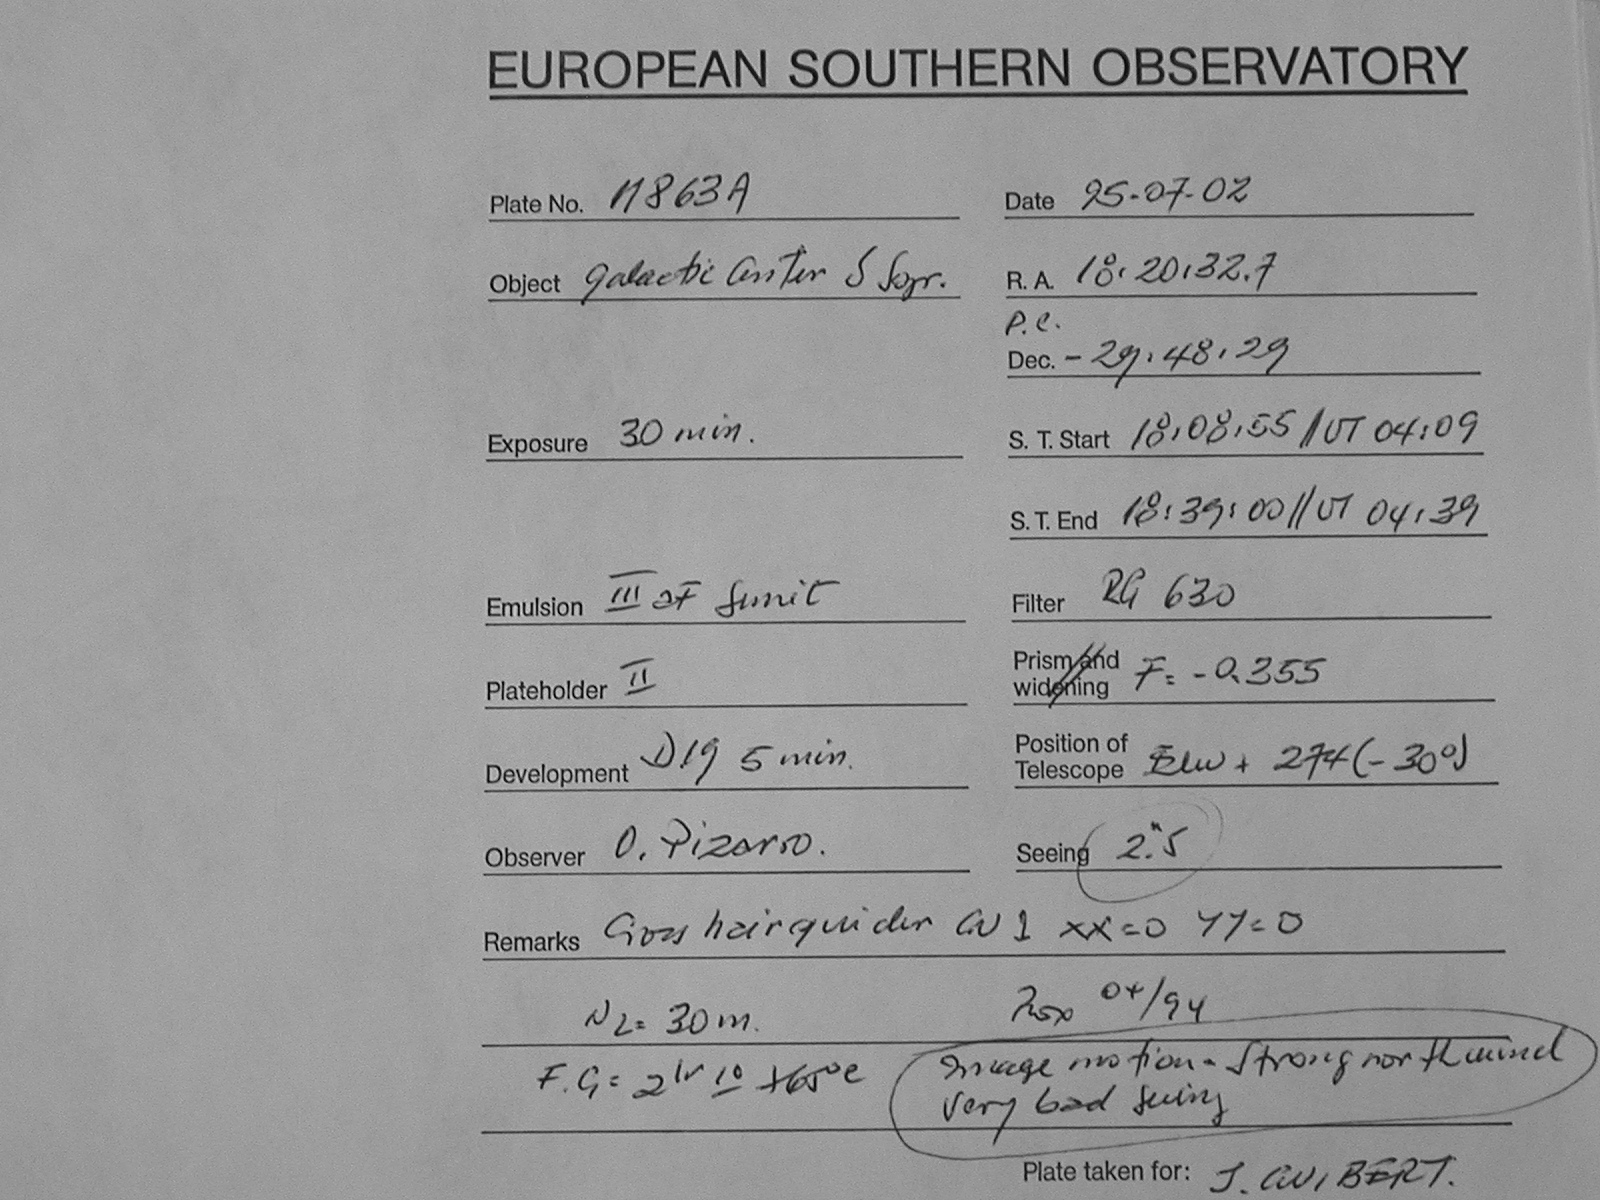 EUROPEAN SOUTHERN OBSERVATORY
Plate No. 11863A Date 95-07-02
Object galactic Center S Sgr. R. A. 18:20:32.7
P.C.
Dec. - 29:48:29
Exposure 30 min. S. T. Start 18:08:55 // UT 04:09
S. T. End 18:39:00 // UT 04:39
Emulsion III aF Filter RG 630
Plateholder II Prism and widening F= -0.355
Development D19 5 min. Position of Telescope + 274 (-30°)
Observer O. Pizarro. Seeing 2".5
Remarks Cross hair guider XX=0 YY=0
N2= 30 m. Box 04/94
F.G= 2hr 10 +65°C Image motion - Strong north wind
very bad seeing
Plate taken for: J. GUIBERT.